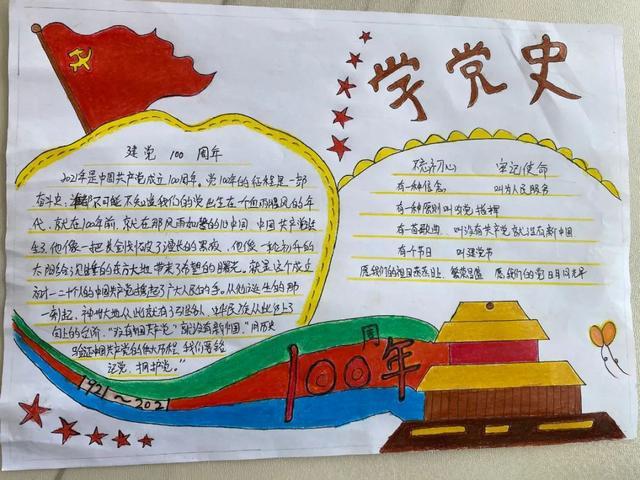 学党史
建党 100 周年
2021年是中国共产党成立100周年。党100年的征程是一部
奋斗史,谁都不可能不知道我们的党已生在个血雨腥风的年
代,就在100年前,就在那风雨如磐的旧中国,中国共产党诞
生了他像一把 划破了漫长的黑夜,他像一轮初升的
太阳给 的东方大地带来了希望的曙光。就是这个成立
初才一二十个人的中国共产党 起了广大人民的手。从她诞生的那
一刻起,神州大地从此就有了引路人,中华民族从此 上了
向上的台阶,“没有中国共产党”就没有新中国”,用历史
验证中国共产党的伟大历程,我们要铭
记党,拥护党。”
1921~2021
100周年
不忘初心 牢记使命
有一种信念, 叫为人民服务
有一种原则叫 党指挥
有一首歌曲 叫没有共产党就没有新中国
有一个节日 叫建党节
愿我们的祖国蒸蒸日上,繁荣昌盛 愿我们的党日月同光华